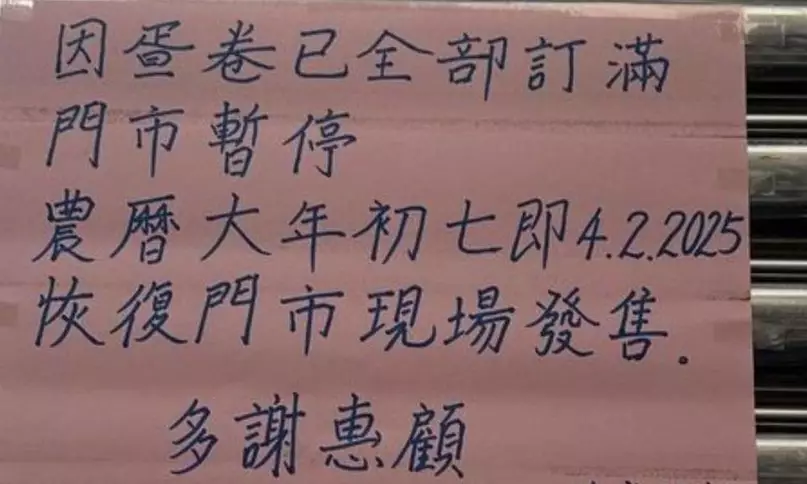 因蛋卷已全部訂滿
門市暫停
農曆大年初七即4.2.2025
恢復門市現場發售.
多謝惠顧